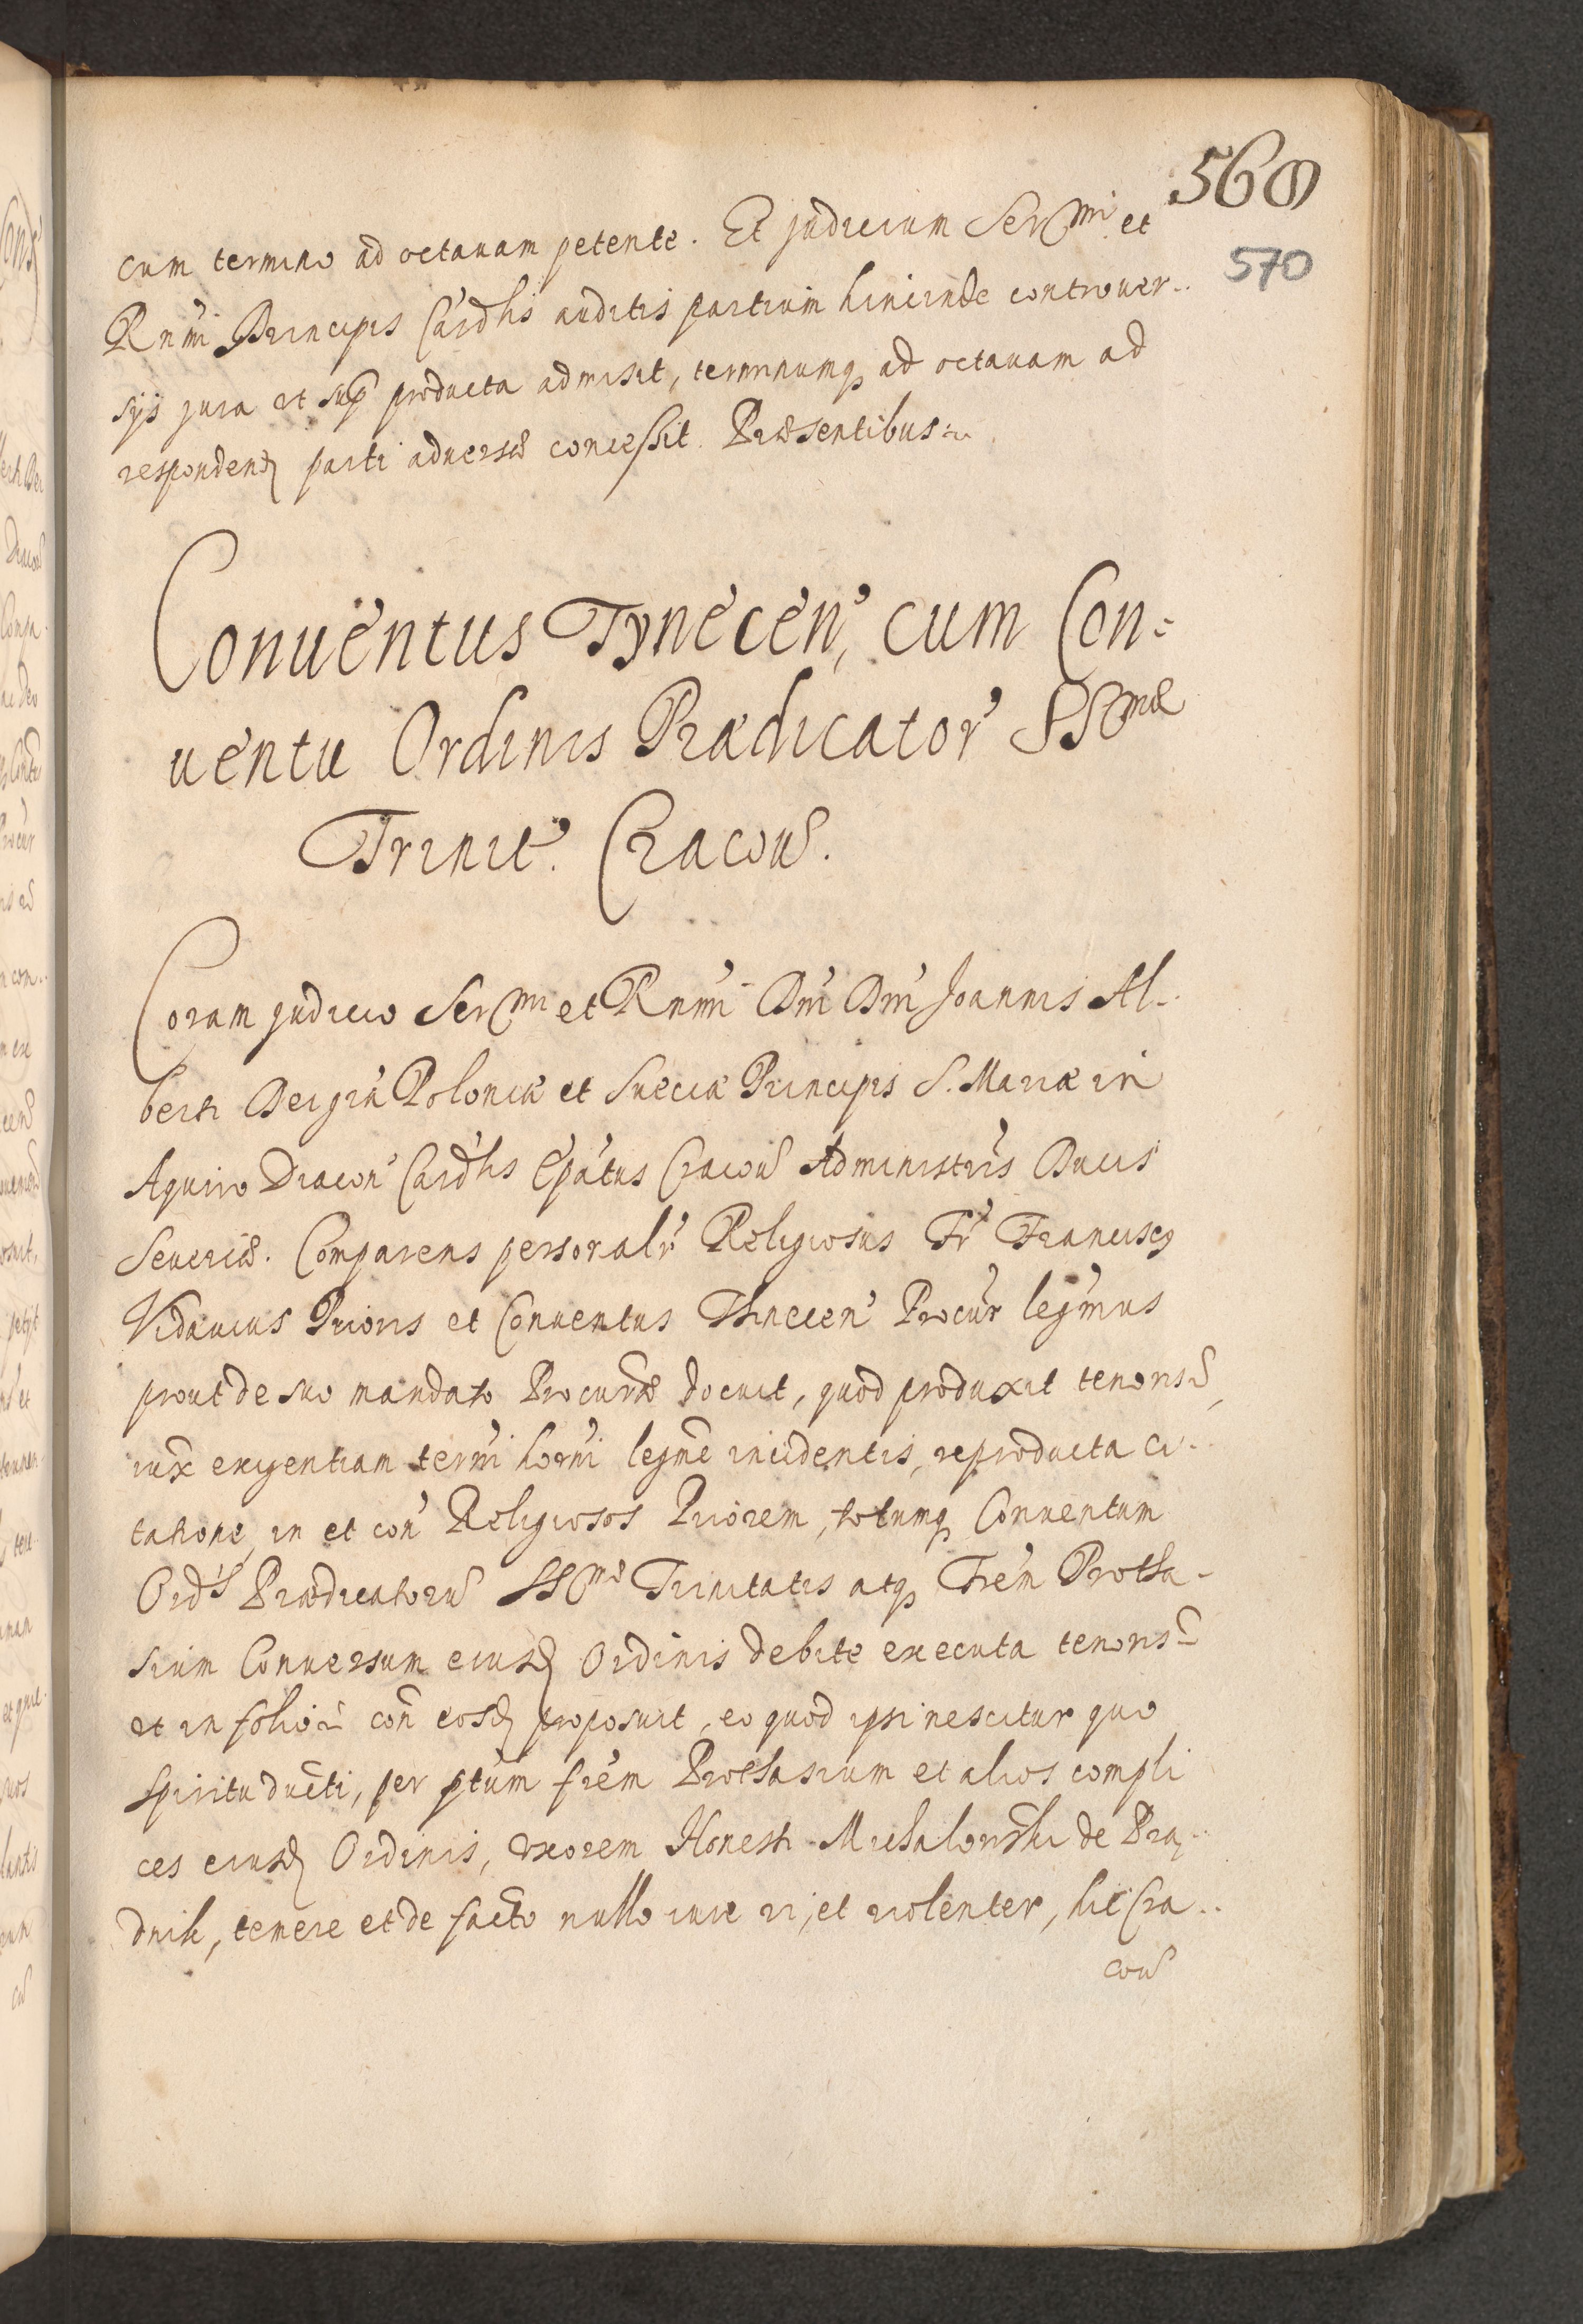 568
570
cum termino ad octauam petente. Et judicium Sermi et
Rnmi Principis Cardlis auditis partium hincinde controuer..
sijs jura et sup producta admisit, terminumq ad octauam ad
respondend parti aduersæ concessit. Præsentibus
Conuentus Tynecen, cum Con=
uentu Ordinis Prædicator SSmæ
Trinit. Cracou.
Coram judicio Sermi et Rnmi Dni Dni Joannis Al..
berti Dei gra Poloniæ et Sueciæ Principis S. Mariæ in
Aquiro Diacon Cardlis Epatus Cracou Administris Ducis
Seueriæ. Comparens personalr Religiosus Fr Franciscq
Vidauius Prioris et Conuentus Thinecen Procur legmus
prout de suo mandato Procuræ docuit, quod produxit tenoris,
iux exigentiam termi horni legme incidentis, reproducta ci..
tatione, in et con Religiosos Priorem, totumq Conuentum
Ordis Prædicatoru SSmæ Trinitatis atq Frem Protha-
sium Conuersum eiusd Ordinis debite executa tenoris
et in folio con eosd proposuit, eo quod ipsi nescitur quo
spiritu ducti, per ptum frem Prothasium et alios compli
ces eiusd Ordinis, uxorem Honesti Michalowski de Prą..
dnik, temere et de facto nullo iure ui, et uiolenter, hic Cra..
cou